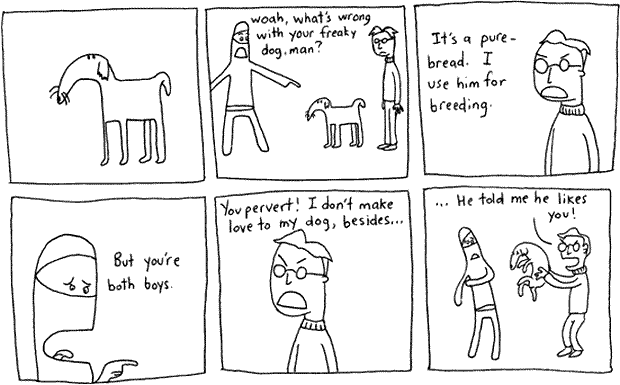 woah, what's wrong
with your freaky
dog, man?
It's a pure-
bread. I
use him for
breeding.
But you're
both boys.
You pervert! I don't make
love to my dog, besides...
... He told me he likes
you!